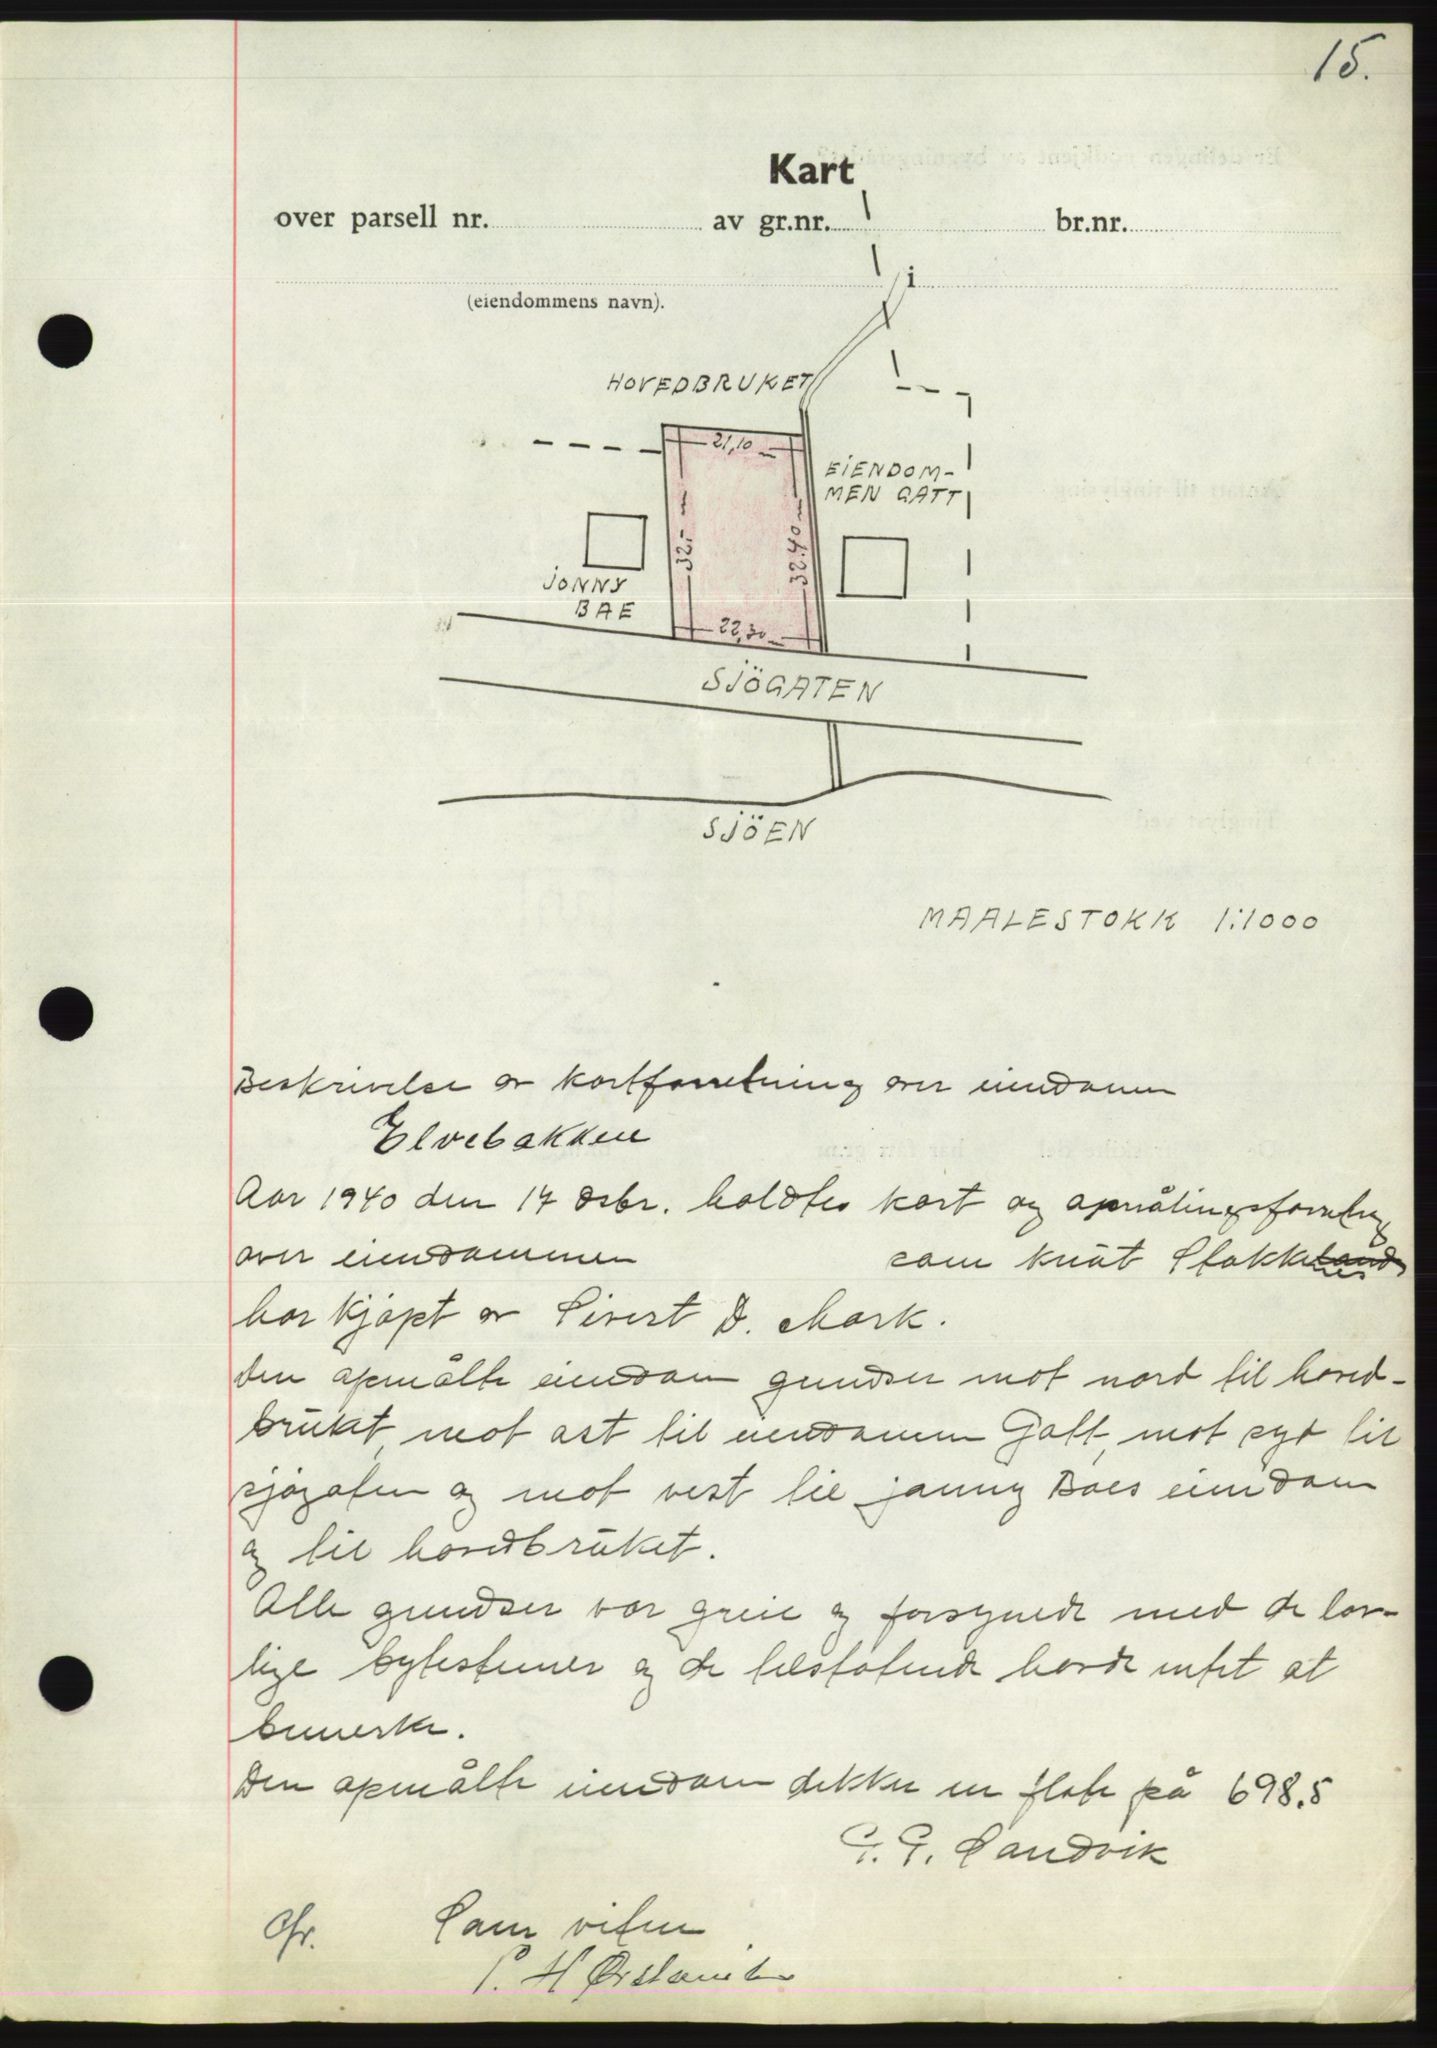 15.
Kart
over parsell nr. av gr.nr. br.nr.
i
(eiendommens navn).
HOVEDBRUKET
21,10
EIENDOM-
MEN GATT
32.-
32.40
JONNY
BAE
22,30
SJÖGATEN
SJÖEN
MAALESTOKK 1:1000
Beskrivelse av kartforretning over eiendommen
Elvebakken
Aar 1940 den 17 dsbr. holdtes kart og opmålingsforretning
over eiendommen som Knut Stokkeland
har kjøpt av Sivert D. Mork.
Den opmålte eiendom grendser mot nord til hoved-
bruket, mot øst til eiendommen Gatt, mot syd til
sjøgaten og mot vest til Jonny Baes eiendom
og til hovedbruket.
Alle grendser var greie og forsynede med de lov-
lige bytesteiner og de tilstøtende havde intet at
bemerke.
Den opmålte eiendom dekker en flate på 698.5
Sandvik
Som vitne
P. H